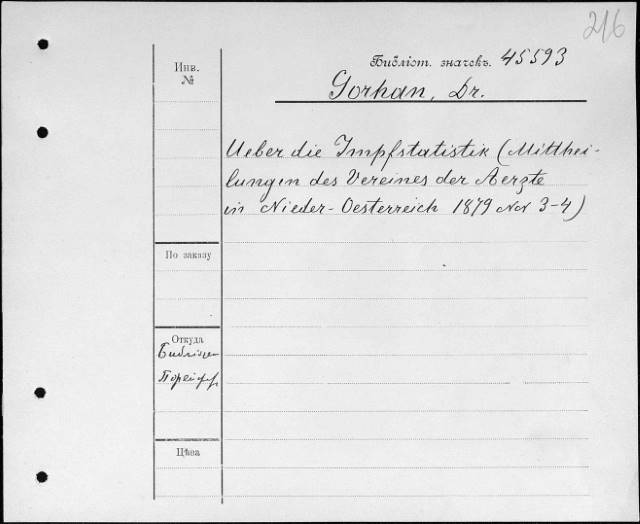 216
Инв.
№
Библіот. значекъ. 45593
Gorhan, Dr.
Ueber die Impfstatistik (Mitthei-
lungen des Vereines der Aerzte
in Nieder-Oesterreich 1879 No 3-4)
По заказу
Откуда
Цѣна